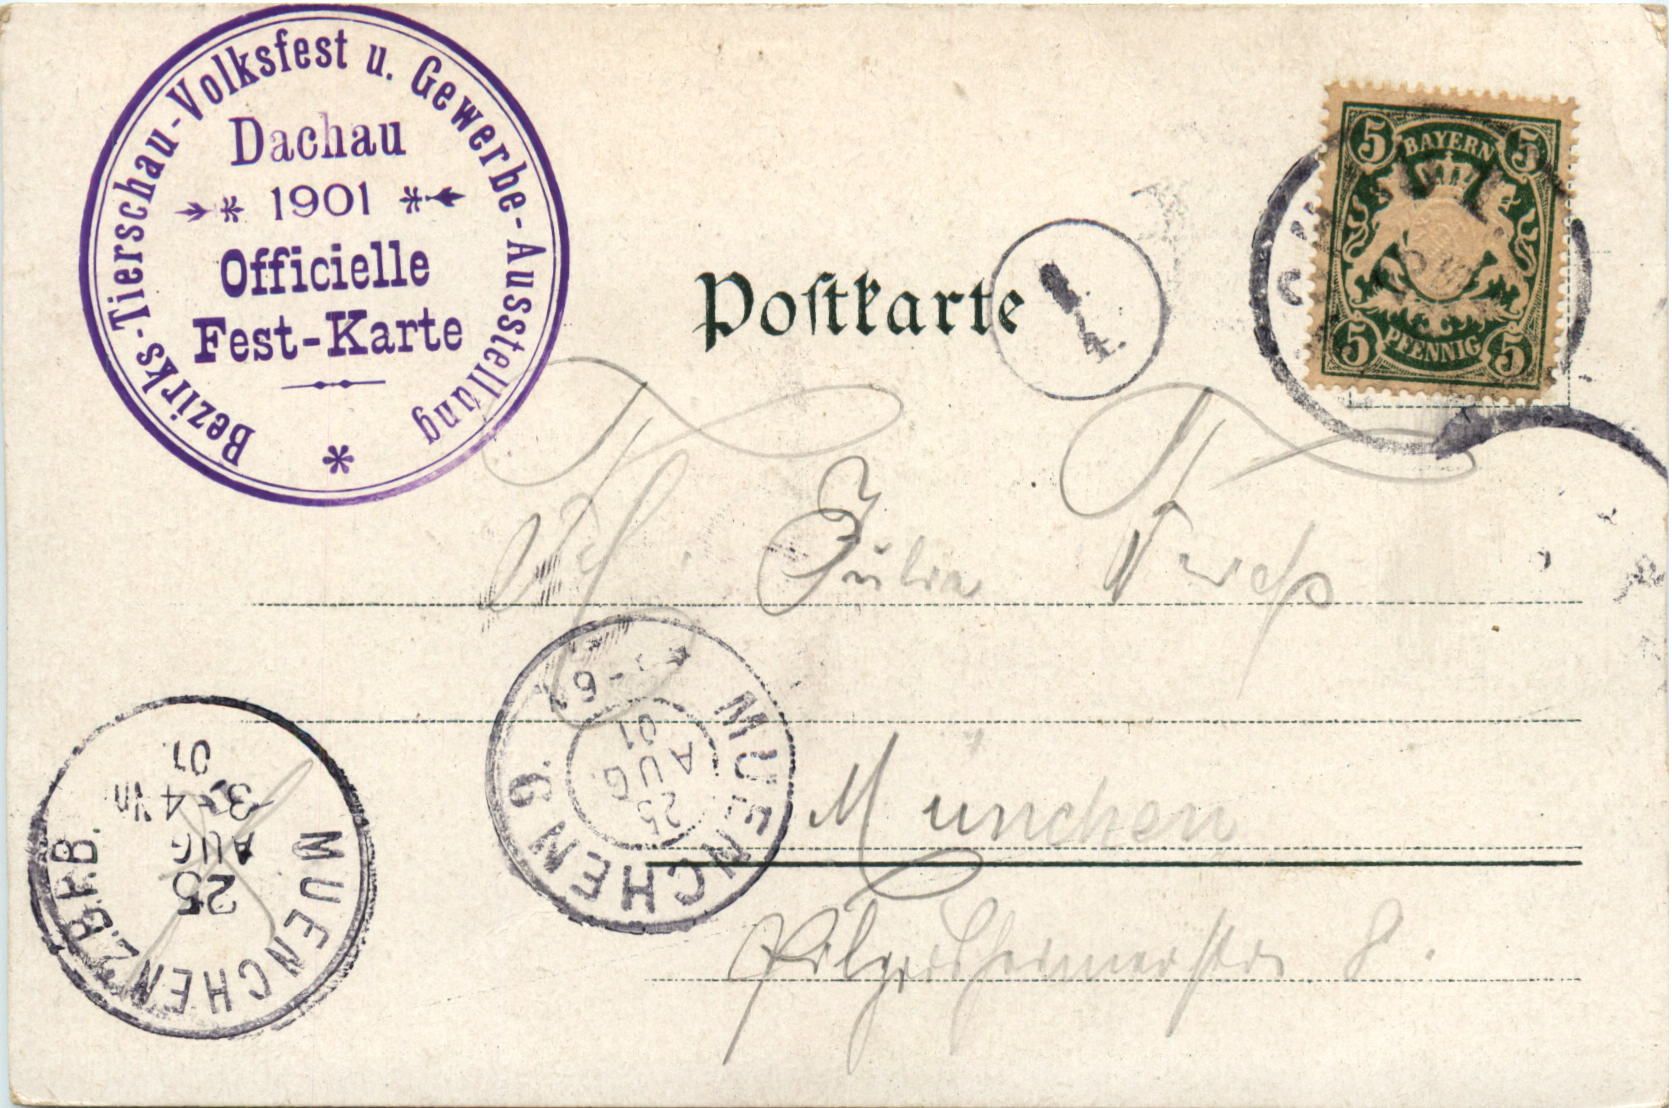 Bezirks-Tierschau-Volksfest u. Gewerbe-Ausstellung
Dachau
1901
Officielle
Fest-Karte
Postkarte
4.
5 BAYERN 5
5 PFENNIG 5
Julia
München
Pilgersheimerstr. 8.
MUENCHEN 9.
25
AUG
01
MUENCHEN 2. B.P.B.
25
AUG
3-4 Vn
01